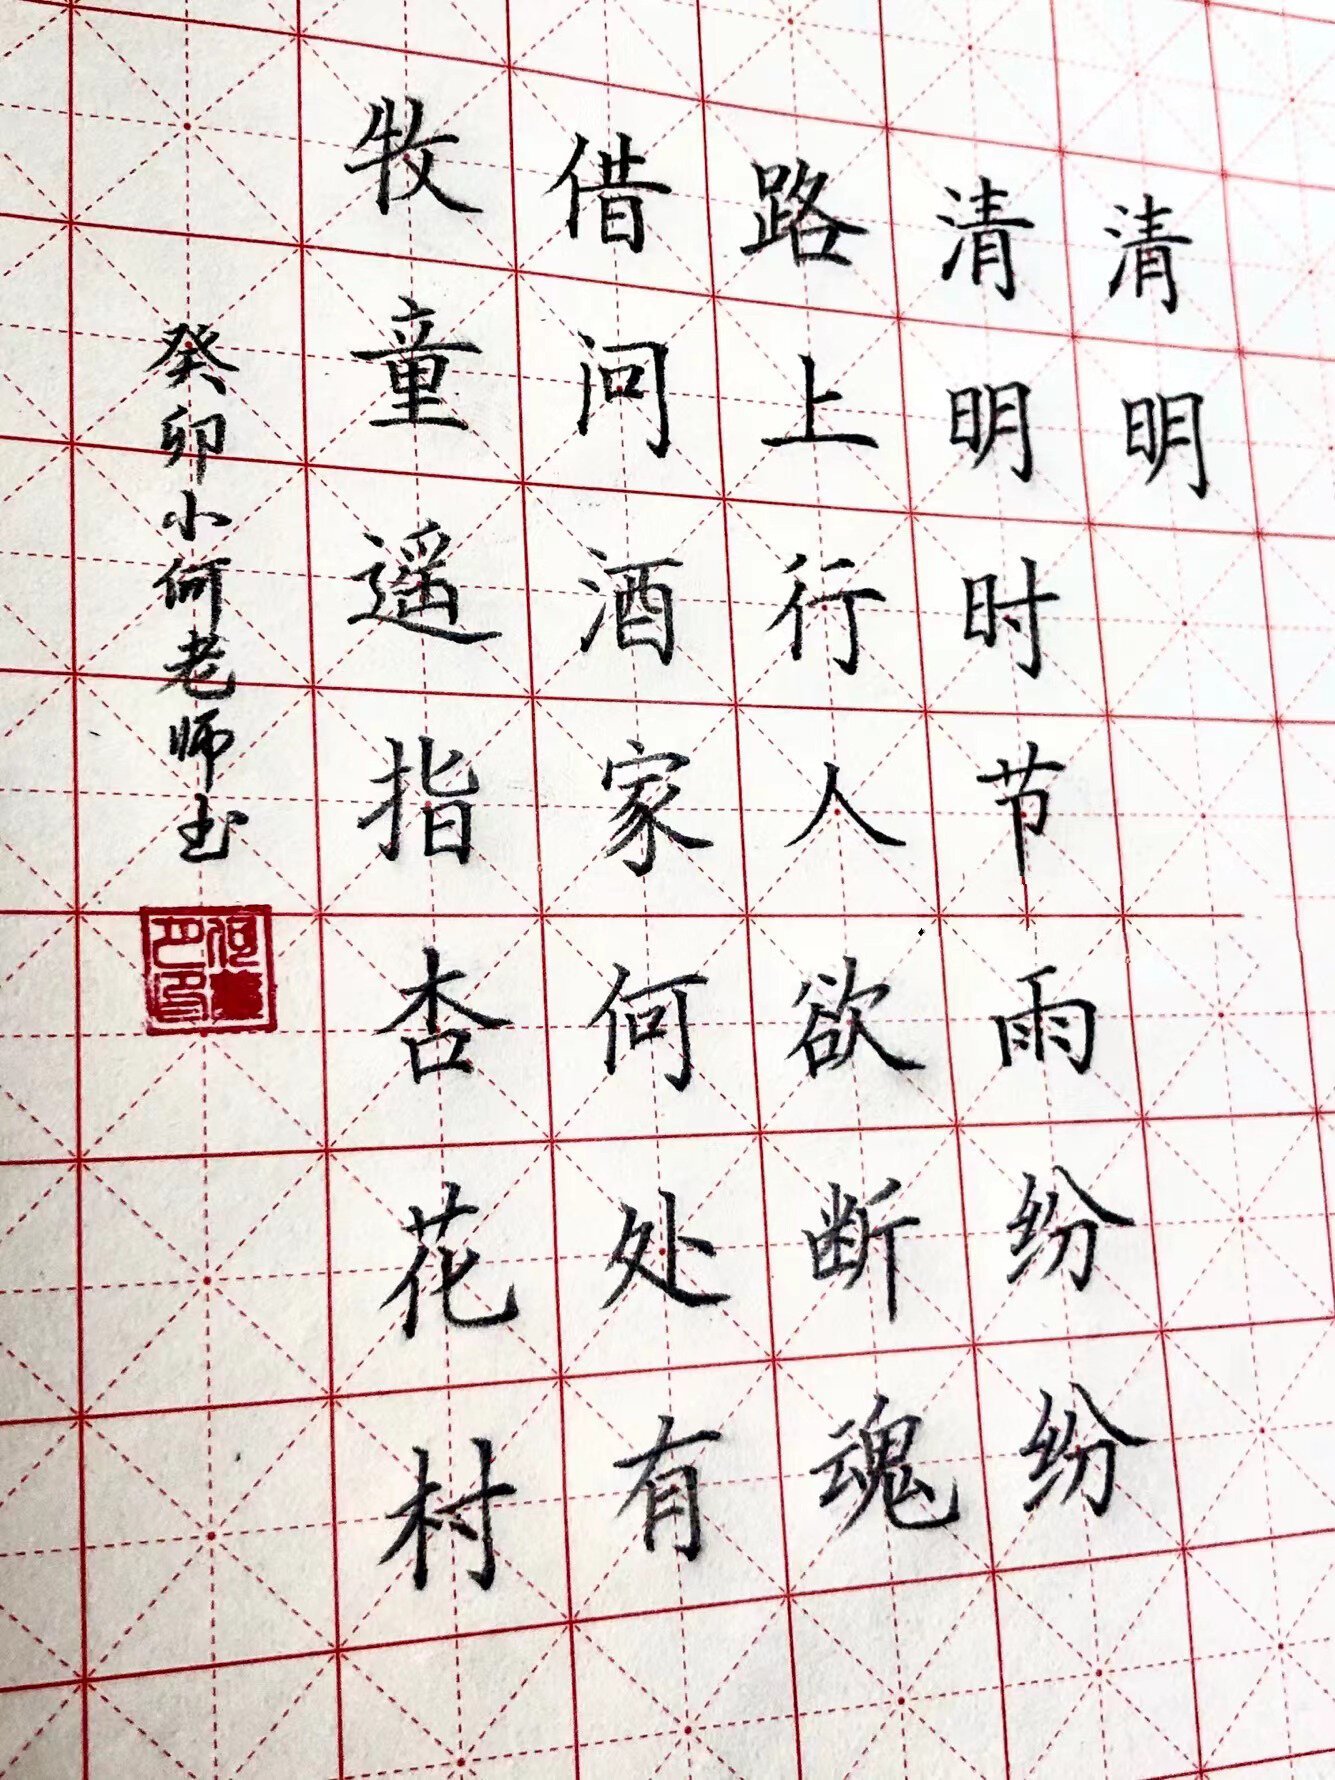 清明
清明时节雨纷纷
路上行人欲断魂
借问酒家何处有
牧童遥指杏花村
癸卯小何老师书